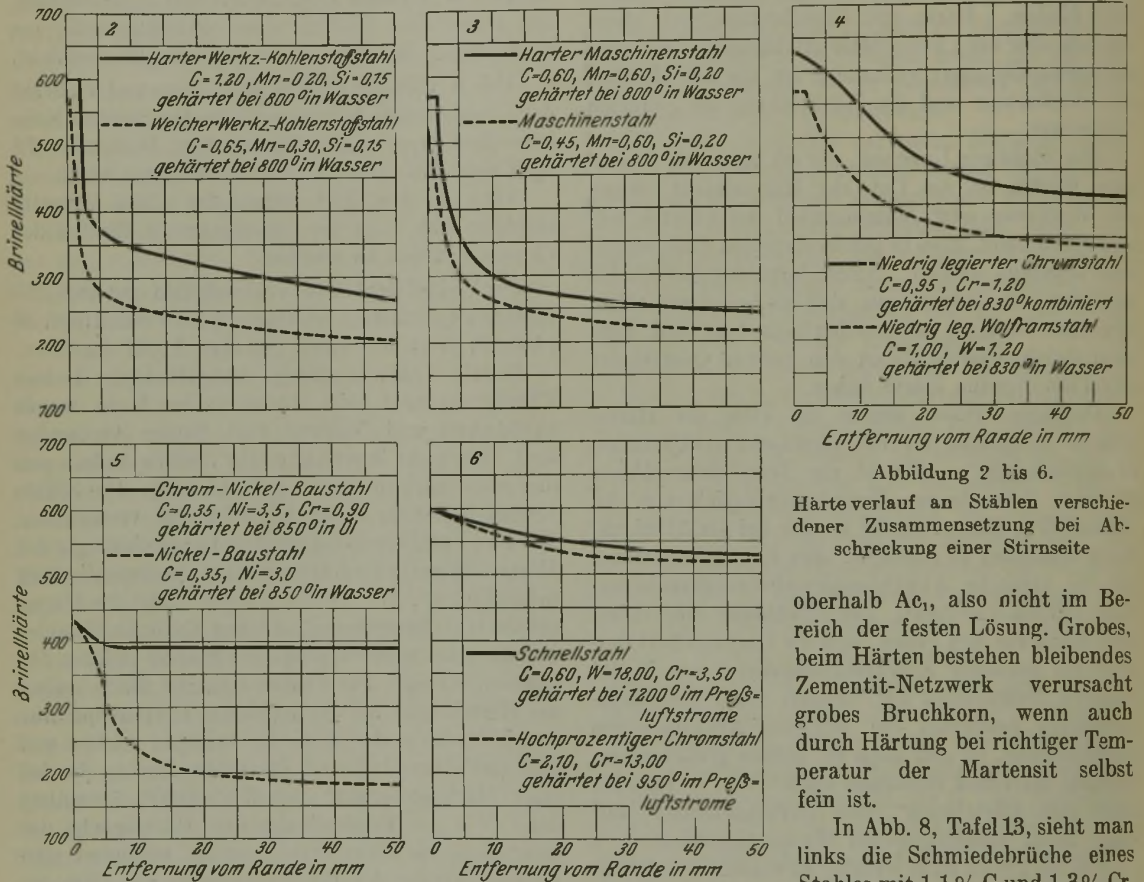 700
600
500
400
300
200
100
Brinellhärte
2
Harter Werkz.-Kohlenstoffstahl
C=1,20, Mn=0,20, Si=0,15
gehärtet bei 800° in Wasser
Weicher Werkz.-Kohlenstoffstahl
C=0,65, Mn=0,30, Si=0,15
gehärtet bei 800° in Wasser
3
Harter Maschinenstahl
C=0,60, Mn=0,60, Si=0,20
gehärtet bei 800° in Wasser
Maschinenstahl
C=0,45, Mn=0,60, Si=0,20
gehärtet bei 800° in Wasser
4
Niedrig legierter Chromstahl
C=0,95, Cr=1,20
gehärtet bei 830° kombiniert
Niedrig leg. Wolframstahl
C=1,00, W=1,20
gehärtet bei 830° in Wasser
0 10 20 30 40 50
Entfernung vom Rande in mm
700
600
500
400
300
200
100
Brinellhärte
5
Chrom-Nickel-Baustahl
C=0,35, Ni=3,5, Cr=0,90
gehärtet bei 850° in Öl
Nickel-Baustahl
C=0,35, Ni=3,0
gehärtet bei 850° in Wasser
0 10 20 30 40 50
Entfernung vom Rande in mm
6
Schnellstahl
C=0,60, W=18,00, Cr=3,50
gehärtet bei 1200° im Preß=
luftstrome
Hochprozentiger Chromstahl
C=2,10, Cr=13,00
gehärtet bei 950° im Preß=
luftstrome
0 10 20 30 40 50
Entfernung vom Rande in mm
Abbildung 2 bis 6.
Härteverlauf an Stählen verschie-
dener Zusammensetzung bei Ab-
schreckung einer Stirnseite
oberhalb Ac₁, also nicht im Be-
reich der festen Lösung. Grobes,
beim Härten bestehen bleibendes
Zementit-Netzwerk verursacht
grobes Bruchkorn, wenn auch
durch Härtung bei richtiger Tem-
peratur der Martensit selbst
fein ist.
In Abb. 8, Tafel 13, sieht man
links die Schmiedebrüche eines
Stahles mit 1,1 % C und 1,3 % Cr,